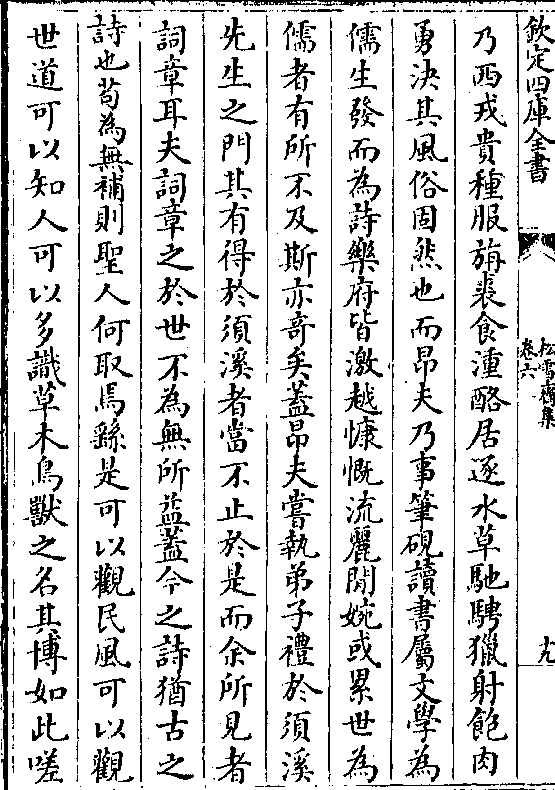 欽定四庫全書
松雪齋集
卷六
十九
乃西戎貴種服旃裘食湩酪居逐水草馳騁獵射飽肉
勇決其風俗固然也而昂夫乃事筆硯讀書屬文學為
儒生發而為詩樂府皆激越慷慨流麗閒婉或累世為
儒者有所不及斯亦奇矣蓋昂夫嘗執弟子禮於須溪
先生之門其有得於須溪者當不止於是而余所見者
詞章耳夫詞章之於世不為無所益蓋今之詩猶古之
詩也苟為無補則聖人何取焉繇是可以觀民風可以觀
世道可以知人可以多識草木鳥獸之名其博如此嗟